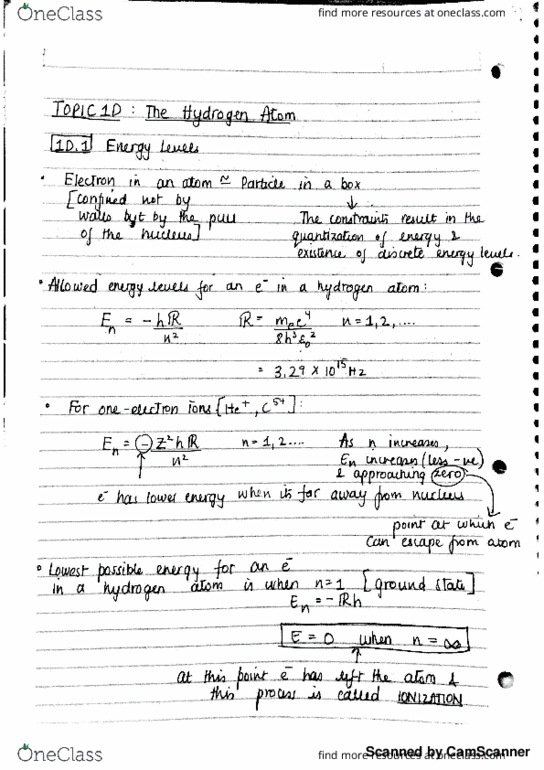 OneClass
find more resources at oneclass.com
TOPIC 1D : The Hydrogen Atom
1D.1 Energy levels
• Electron in an atom ≈ Particle in a box
[confined not by
walls but by the pull
of the nucleus]
The constraints result in the
quantization of energy &
existence of discrete energy levels.
• Allowed energy levels for an e⁻ in a hydrogen atom:
Eₙ = -hℝ/n² ℝ = mₑe⁴/8h³ε₀² n = 1,2,....
= 3.29 × 10¹⁵ Hz
• For one-electron ions [He⁺, C⁵⁺]:
Eₙ = -Z²hℝ/n² n = 1, 2....
As n increases,
Eₙ increases (less -ve)
& approaching zero
e⁻ has lower energy when its far away from nucleus
point at which e⁻
can escape from atom
• Lowest possible energy for an e⁻
in a hydrogen atom is when n=1 [ground state]
Eₙ = -ℝh
E = 0 when n = ∞
at this point e⁻ has left the atom &
this process is called IONIZATION
Scanned by CamScanner
OneClass
find more resources at oneclass.com